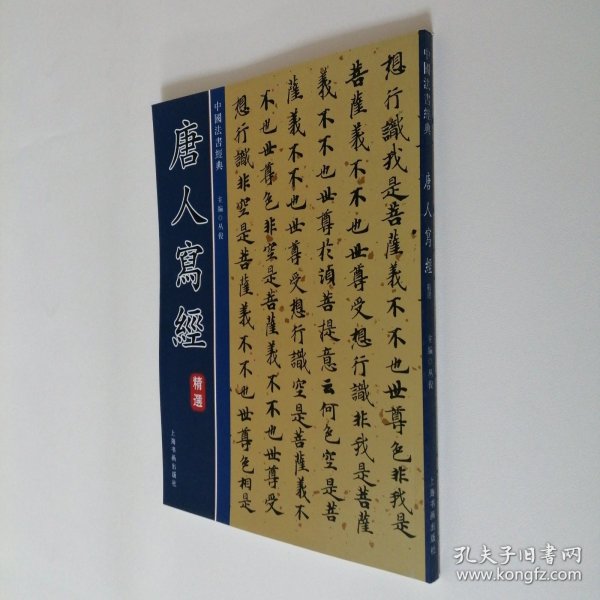 唐人寫經
精選
上海书画出版社
中國法書經典
主編
想行識我是菩薩義不不也世尊色非我是
菩薩義不不也世尊受想行識非我是菩薩
義不不也世尊於湏菩提意云何色空是菩
薩義不不也世尊受想行識空是菩薩義不
不也世尊色非空是菩薩義不不也世尊受
想行識非空是菩薩義不不也世尊色相是
中國法書經典
唐人寫經
精選
主編
上海书画出版社
孔夫子旧书网
www.kongfz.com